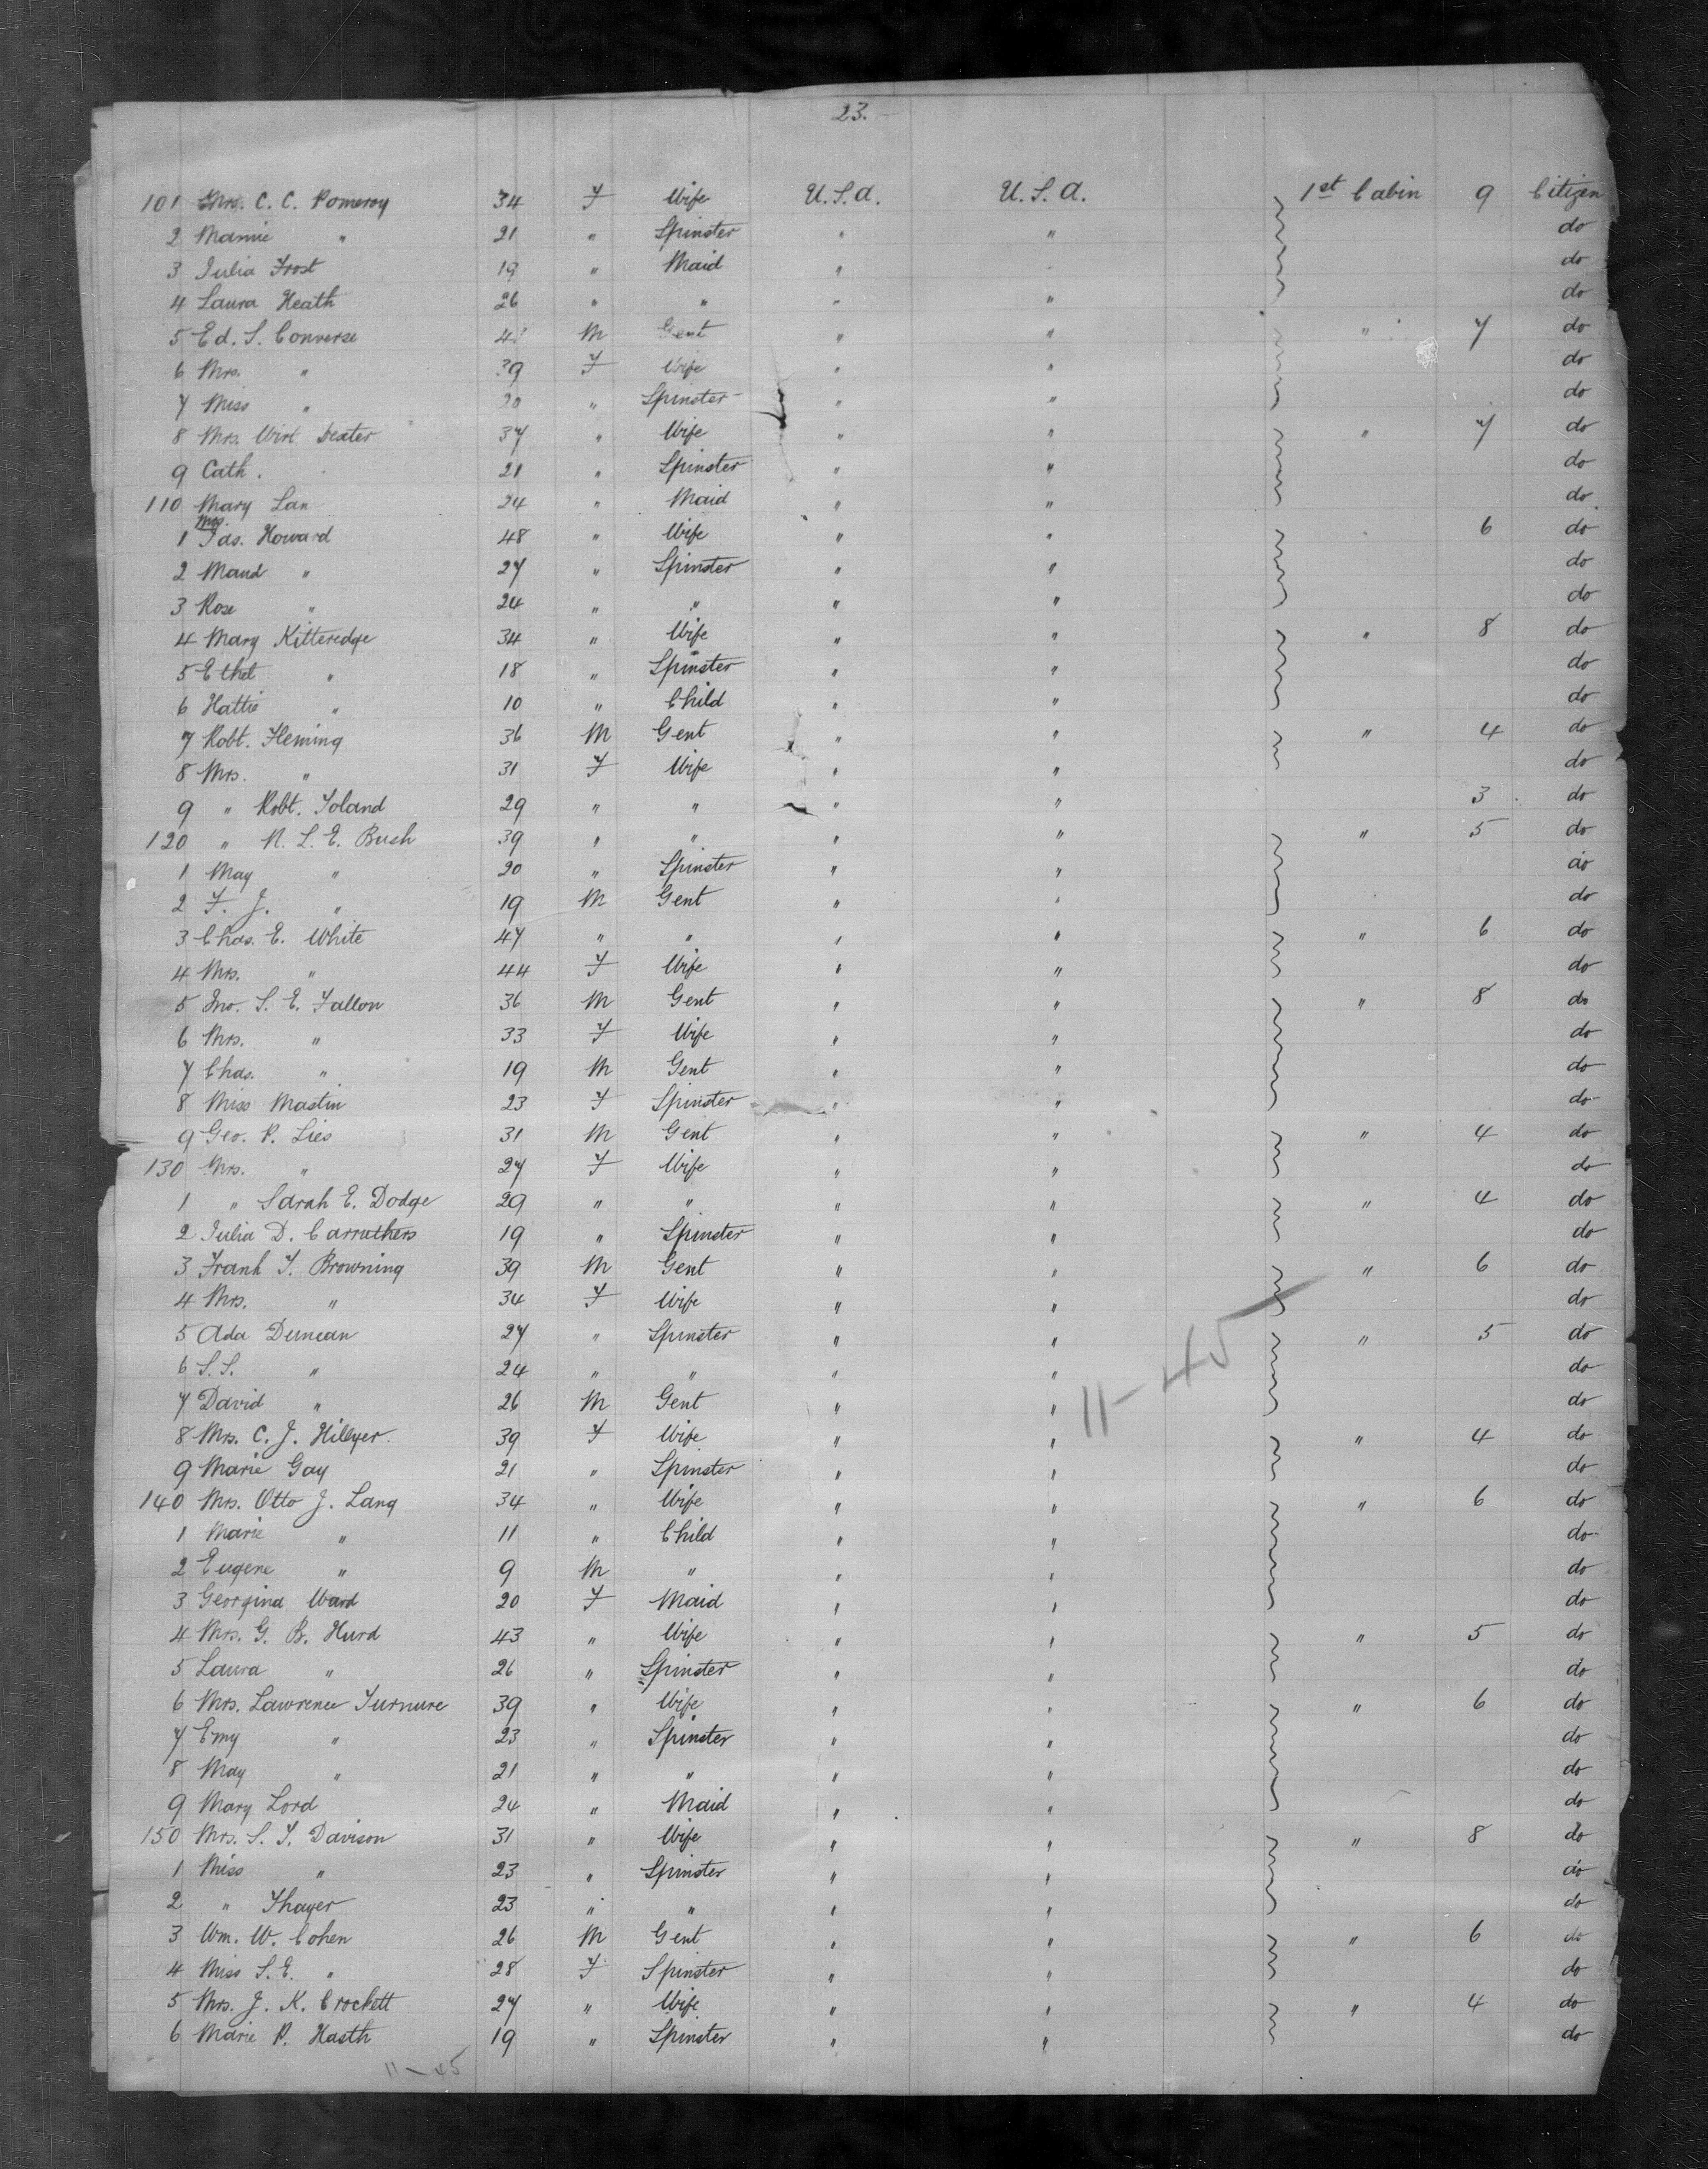 23.
101 Mrs. C. C. Pomeroy 34 F Wife U.S.A. U.S.A. 1st Cabin 9 Citizen
2 Mamie " 21 " Spinster " " do
3 Julia Frost 19 " Maid " " do
4 Laura Heath 26 " " " " do
5 Ed. S. Converse M Gent " " " 7 do
6 Mrs. " 39 F Wife " " do
7 Miss " 20 " Spinster " " do
8 Mrs. Wirt Dexter 37 " Wife " " " 7 do
9 Cath. 21 " Spinster " " do
110 Mary Lan 24 " Maid " " do
Mrs.
1 Jas. Howard 48 " Wife " " 6 do
2 Maud " 27 " Spinster " " do
3 Rose " 24 " " " " do
4 Mary Kitteredge 34 " Wife " " " 8 do
5 Ethel " 18 " Spinster " " do
6 Hattie " 10 " Child " " do
7 Robt. Fleming 36 M Gent " " " 4 do
8 Mrs. " 31 F Wife " " do
9 " Robt. Toland 29 " " " " 3 do
120 " N. L. E. Bush 39 " " " " " 5 do
1 May " 20 " Spinster " " do
2 F. J. " 19 M Gent " " do
3 Chas. E. White 47 " " " " " 6 do
4 Mrs. " 44 F Wife " " do
5 Jno. S. E. Fallon 36 M Gent " " " 8 do
6 Mrs. " 33 F Wife " " do
7 Chas. " 19 M Gent " " do
8 Miss Mastin 23 F Spinster " " do
9 Geo. P. Lies 31 M Gent " " " 4 do
130 Mrs. " 27 F Wife " " do
1 " Sarah E. Dodge 29 " " " " " 4 do
2 Julia D. Carruthers 19 " Spinster " " do
3 Frank T. Browning 39 M Gent " " " 6 do
4 Mrs. " 34 F Wife " " do
5 Ada Duncan 27 " Spinster " " " 5 do
6 S.S. " 24 " " " " do
7 David " 26 M Gent " " do
11-45
8 Mrs. C. J. Hillyer. 39 F Wife " " " 4 do
9 Marie Gay 21 " Spinster " " do
140 Mrs. Otto J. Lang 34 " Wife " " " 6 do
1 Marie " 11 " Child " " do
2 Eugene " 9 M " " " do
3 Georgina Ward 20 F Maid " " do
4 Mrs. G. B. Hurd 43 " Wife " " " 5 do
5 Laura " 26 " Spinster " " do
6 Mrs. Lawrence Turnure 39 " Wife " " " 6 do
7 Emy " 23 " Spinster " " do
8 May " 21 " " " " do
9 Mary Lord 24 " Maid " " do
150 Mrs. S. T. Davison 31 " Wife " " " 8 do
1 Miss " 23 " Spinster " " do
2 " Thayer 23 " " " " do
3 Wm. W. Cohen 26 M Gent " " " 6 do
4 Miss S.E. " 28 F Spinster " " do
5 Mrs. J. K. Crockett 27 " Wife " " " 4 do
6 Marie P. Hasth 19 " Spinster " " do
11-45